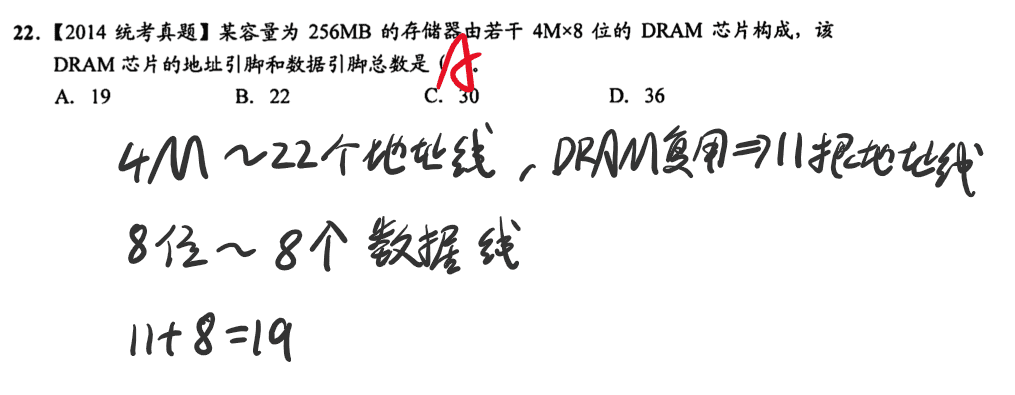 22.【2014 统考真题】某容量为 256MB 的存储器由若干 4M×8 位的 DRAM 芯片构成，该
DRAM 芯片的地址引脚和数据引脚总数是（A）。
A. 19 B. 22 C. 30 D. 36
4M ~22个地址线，DRAM复用⇒11根地址线
8位~ 8个数据线
11+8=19